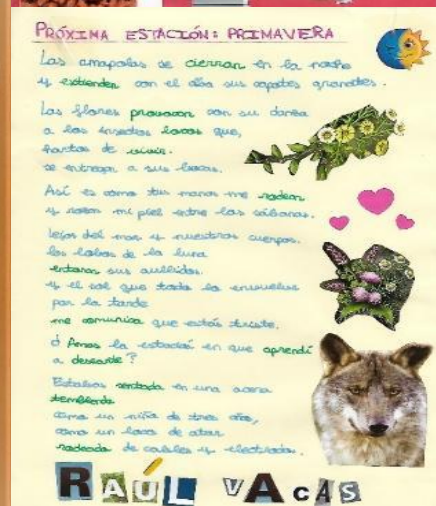 PRÓXIMA ESTACIÓN: PRIMAVERA
Las amapolas se cierran en la noche
y extienden con el día sus capotes granates.
Las flores provocan con su danza
a los insectos locos que,
hartos de vivir.
se entregan a sus bocas.
Así es como tus manos me rodean
y rozan mi piel entre las sábanas.
lejos del mar y nuestros cuerpos.
los lobos de la luna
entonan sus aullidos.
y el sol que todo lo envuelve
por la tarde
me comunica que estás triste.
¿Amas la estación en que aprendí
a desearte?
Estabas sentada en una acera
temblando
como un niña de tres años,
como un loco de atar
rodeada de cables y electrodos.
RAÚL VACAS